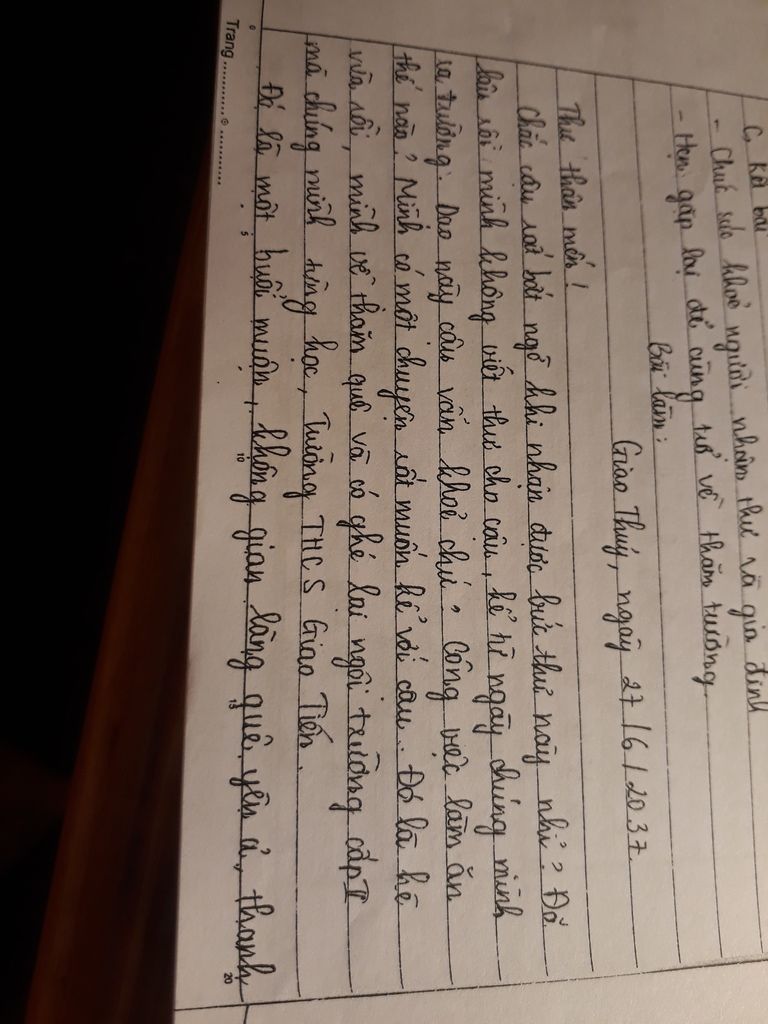 C, Kết bài
- Chúc sức khoẻ người nhận thư và gia đình
- Hẹn gặp lại để cùng trở về thăm trường.
Bài làm:
Giao Thuỷ, ngày 27/6/2037.
Thư thân mến!
Chắc cậu rất bất ngờ khi nhận được bức thư này nhỉ? Đã
lâu rồi mình không viết thư cho cậu, kể từ ngày chúng mình
ra trường. Dao này cậu vẫn khoẻ chứ? Công việc làm ăn
thế nào? Mình có một chuyện rất muốn kể với cậu. Đó là hè
vừa rồi, mình về thăm quê và có ghé lại ngôi trường cấp II
mà chúng mình từng học, Trường THCS Giao Tiến.
Đó là một buổi muộn, không gian làng quê yên ả, thanh
Trang
5
10
15
20